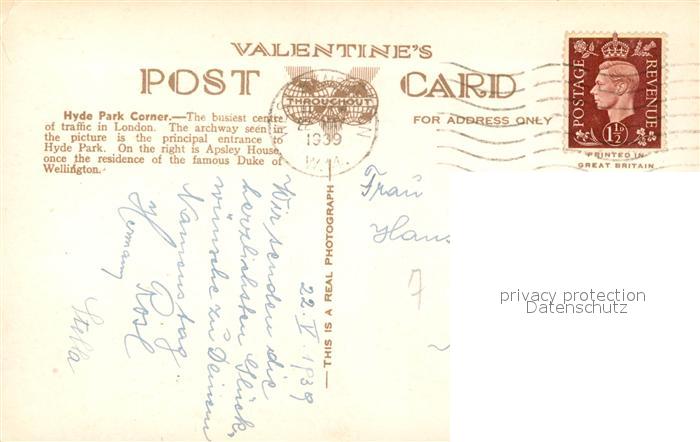 VALENTINE'S
POST CARD
THROUGHOUT
FOR ADDRESS ONLY
Hyde Park Corner.—The busiest centre
of traffic in London. The archway seen in
the picture is the principal entrance to
Hyde Park. On the right is Apsley House,
once the residence of the famous Duke of
Wellington.
1939
W.1.
POSTAGE
REVENUE
1½D
PRINTED IN
GREAT BRITAIN
— THIS IS A REAL PHOTOGRAPH —
22. V. 1939
Wir senden die
herzlichsten Glück-
wünsche zu Deinem
Namenstag.
Hermann Rosl
Stella
Frau
Hans
7
privacy protection
Datenschutz